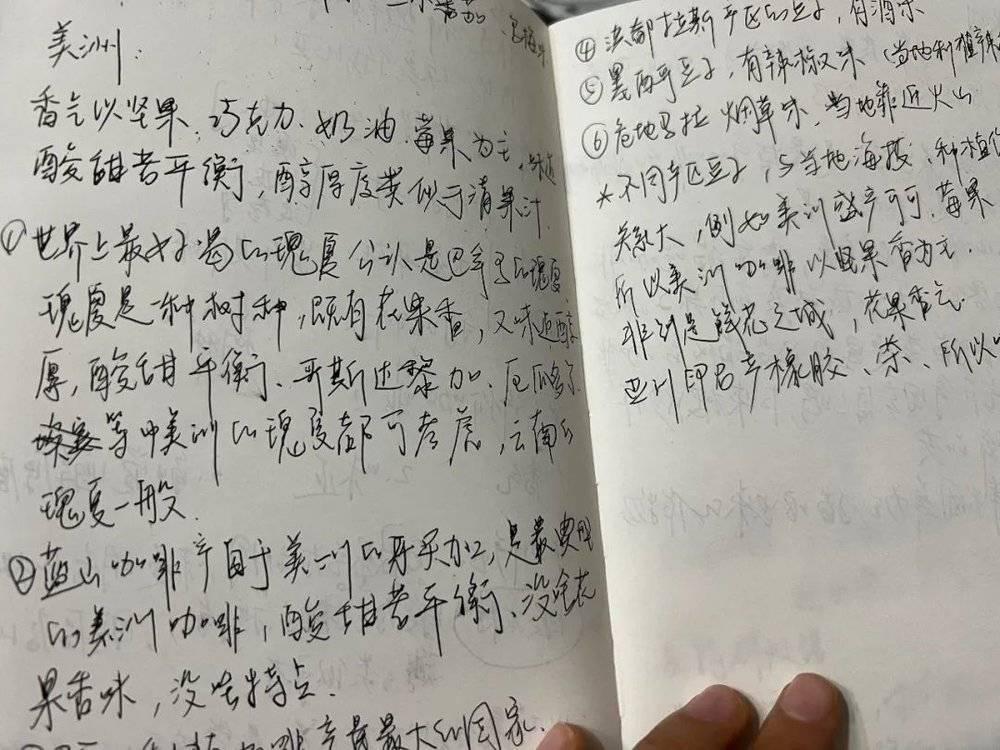 美洲:
香气以坚果、巧克力、奶油、莓果为主,
酸甜苦平衡,醇厚度类似于清果汁
① 世界上最好喝的瑰夏公认是巴拿马的瑰夏
瑰夏是一种树种,既有花果香,又味道醇
厚,酸甜平衡、哥斯达黎加、厄瓜多尔
等中美洲的瑰夏都可考虑,云南的
瑰夏一般.
② 蓝山咖啡产自于美洲的牙买加,是最典型
的美洲咖啡,酸甜苦平衡、没啥花
果香味,没啥特点.
咖啡产量最大的国家.
④ 洪都拉斯产区的豆子,有酒味
⑤ 墨西哥豆子,有辣椒味(当地种植辣椒
⑥ 危地马拉 烟草味,当地靠近火山
* 不同产区豆子,与当地海拔、种植
关系大,例如美洲盛产可可、莓果
所以美洲咖啡以坚果香为主.
非洲是鲜花之城,花果香气.
亚洲印尼产橡胶、茶、所以